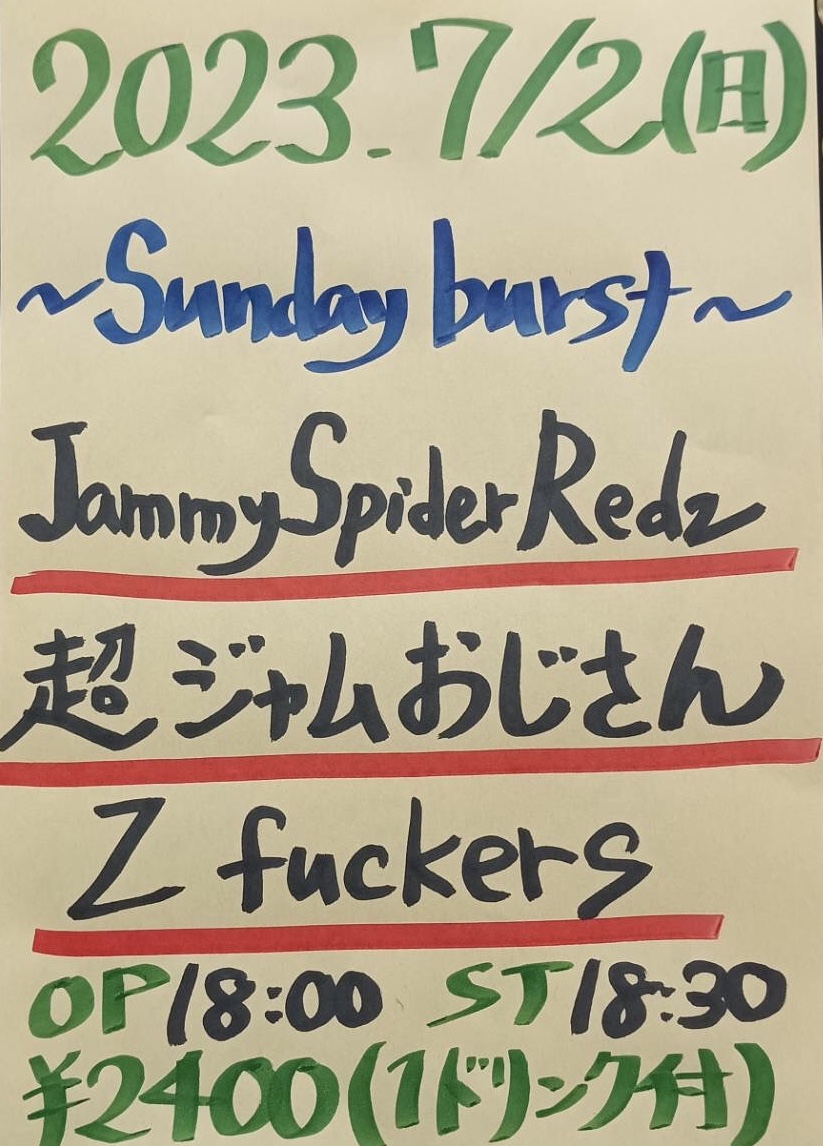 2023.7/2(日)
~Sunday burst~
Jammy Spider Redz
超ジャムおじさん
Z fuckers
OP 18:00 ST 18:30
¥2400(1ドリンク付)